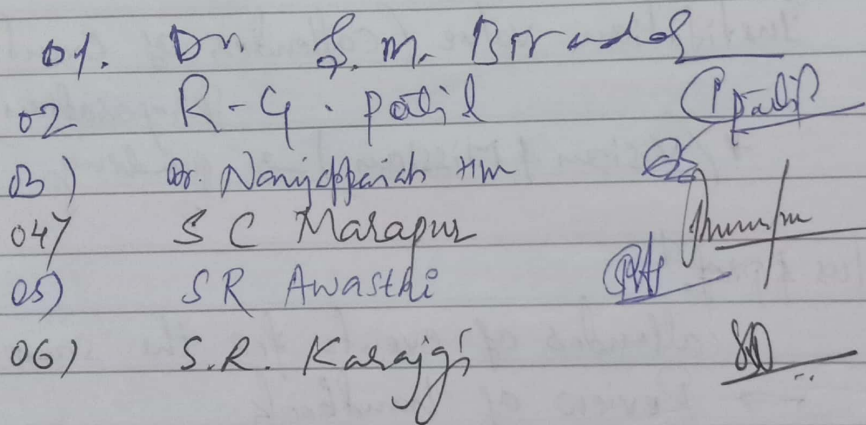 01. Dr S. M. Biradar
02 R. G. Patil Patil
03) Dr. Nanjappaiah HM
04) S C Marapur
05) SR Awasthi
06) S.R. Karajgi